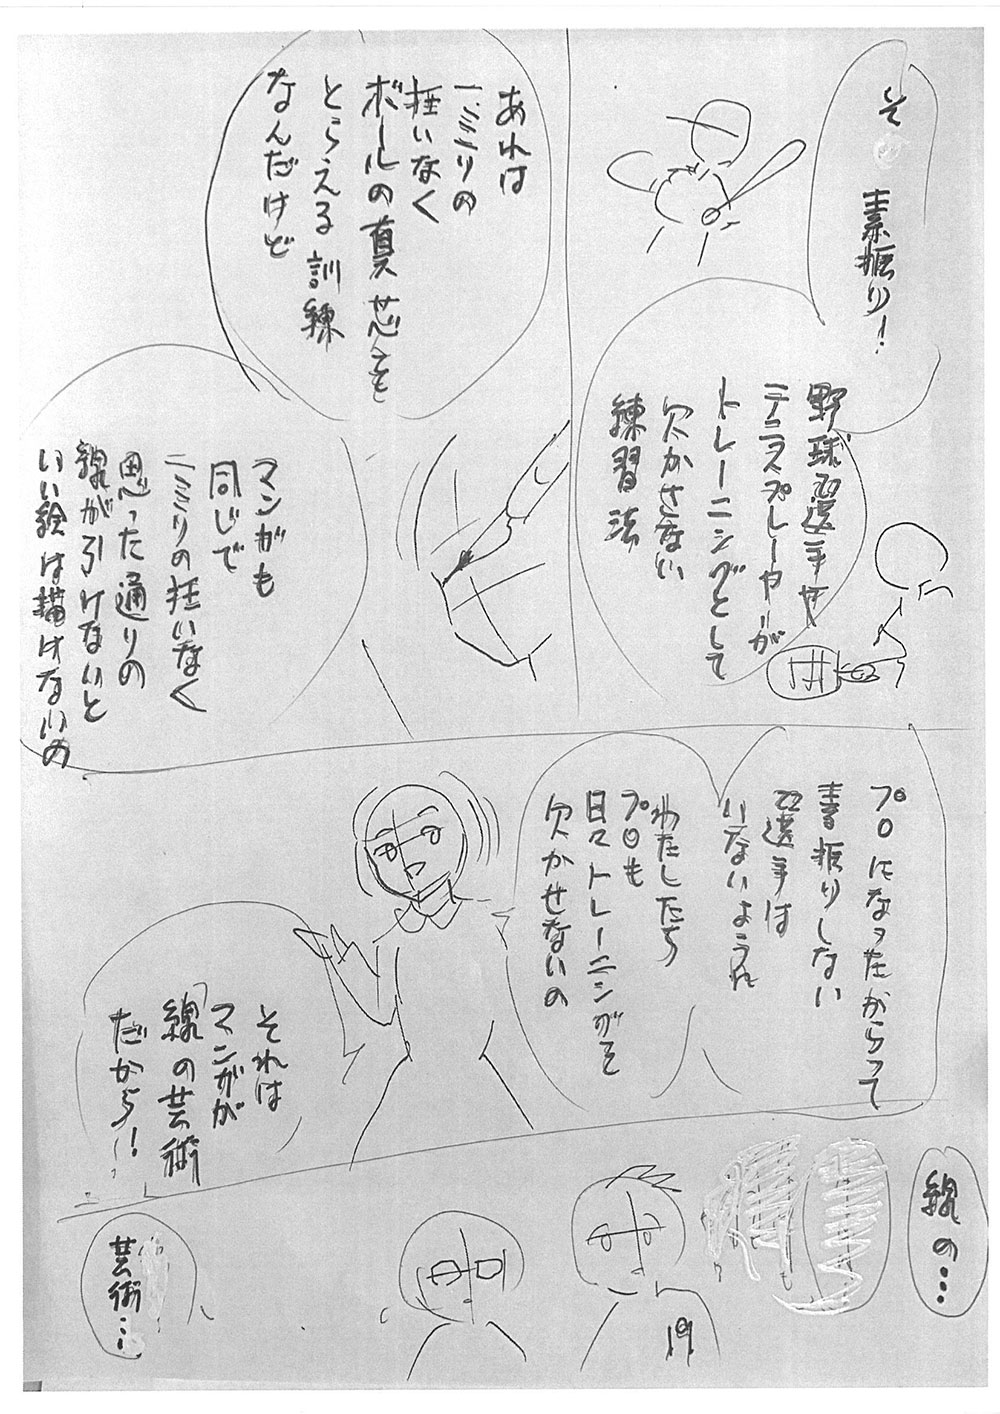 そ
素振り!
野球の選手や
テニスプレーヤーが
トレーニングとして
欠かさない
練習法
あれは
一ミリの
狂いなく
ボールの真芯を
とらえる訓練
なんだけど
マンガも
同じで
一ミリの狂いなく
思った通りの
線が引けないと
いい絵は描けないの
プロになったからって
素振りしない
選手は
いないようね
わたしたち
プロも
日々トレーニングを
欠かせないの
それは
マンガが
「線の芸術」
だから!!
線の…
芸術…